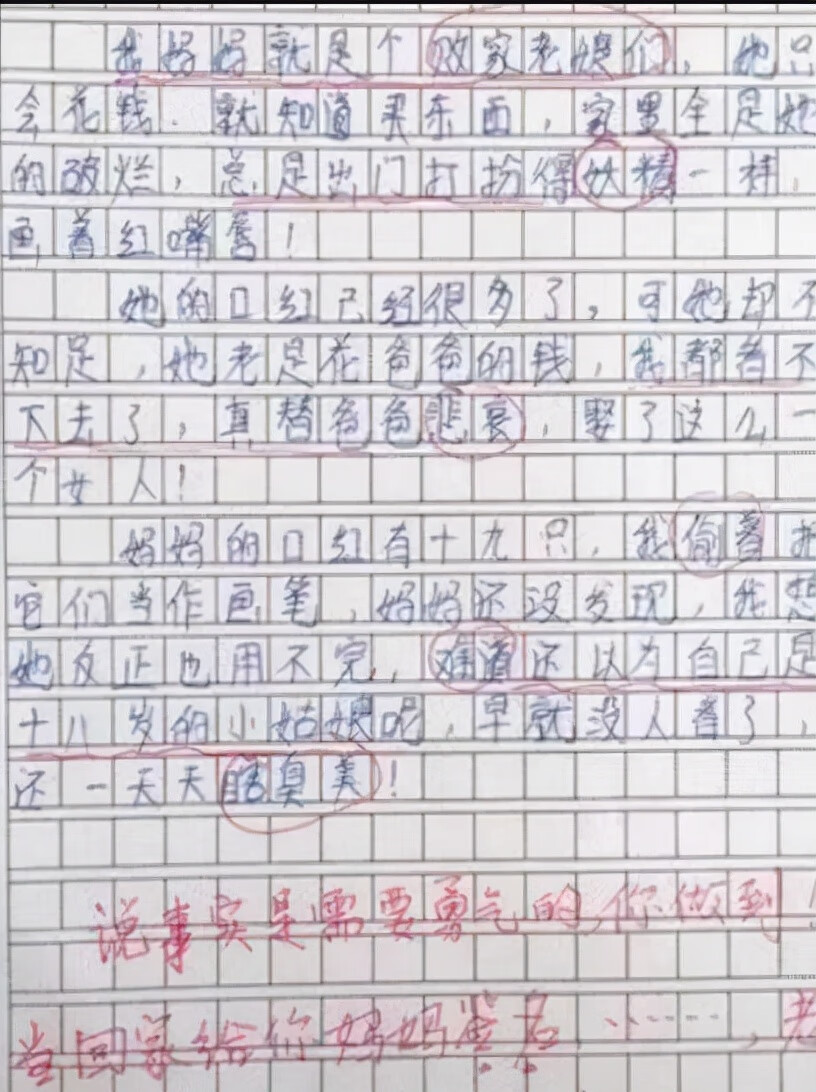 我妈妈就是个败家老娘们，她只
会花钱.就知道买东面，家里全是她
的破烂，总是出门打扮得妖精一样，
画着红嘴唇！
她的口红已经很多了，可她却不
知足，她老是花爸爸的钱，我都看不
下去了，真替爸爸悲哀，娶了这么一
个女人！
妈妈的口红有十九只，我偷着把
它们当作画笔，妈妈还没发现，我想
她反正也用不完，难道还以为自己是
十八岁的小姑娘呢，早就没人看了，
还一天天瞎臭美！
说事实是需要勇气的，你做到！
当回家给你妈妈签名……，老